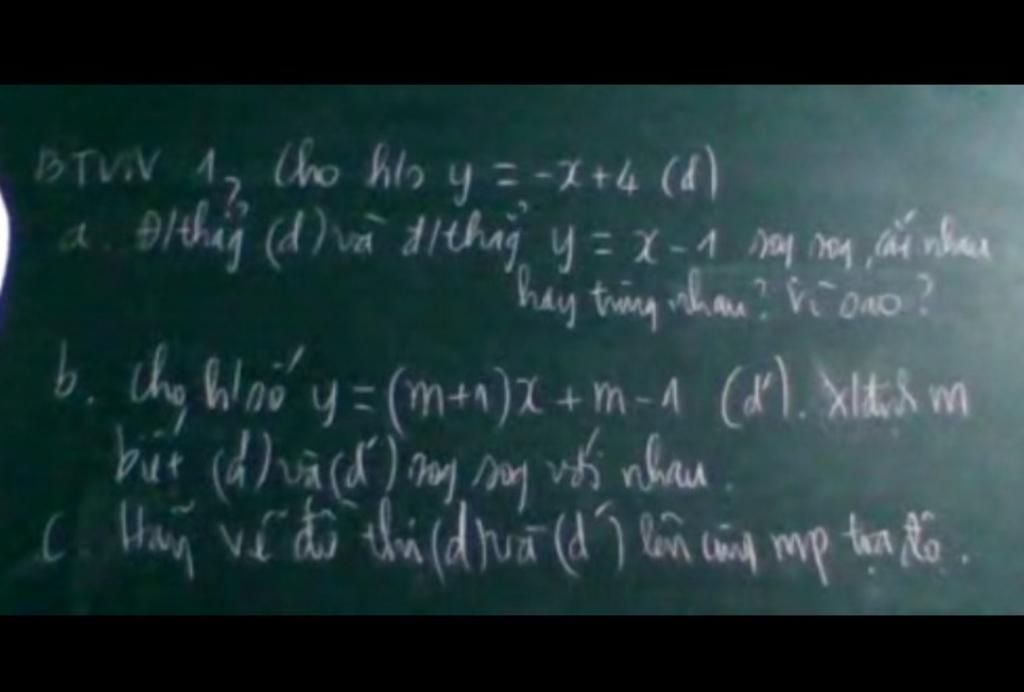 BTVN 1, Cho h/s y = -x+4 (d)
a. Đ/thẳg (d) và đ/thẳg y = x - 1 sog sog, cắt nhau
hay trùng nhau? Vì sao?
b. Cho h/số y = (m+1)x + m - 1 (d'). X/định m
biết (d) và (d') sog sog với nhau.
c. Hãy vẽ đồ thị (d) và (d') lên cùng mp tọa độ.